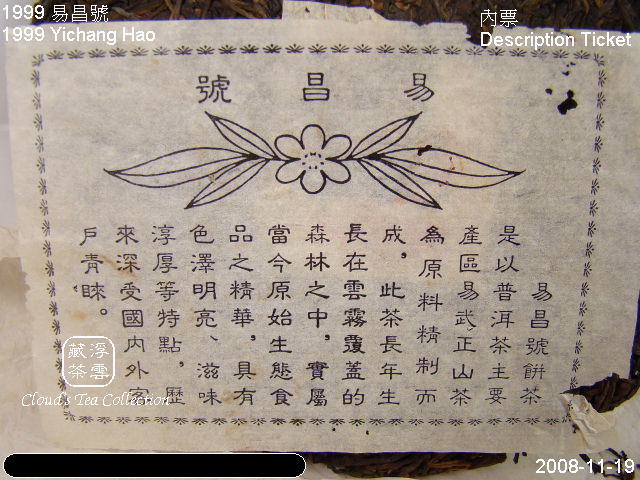 1999 易昌號
1999 Yichang Hao
內票
Description Ticket
號昌易
易昌號餅茶
是以普洱茶主要
產區易武正山茶
為原料精制而
成，此茶長年生
長在雲霧覆蓋的
森林之中，實屬
當今原始生態食
品之精華，具有
色澤明亮、滋味
淳厚等特點，歷
來深受國內外客
戶青睞。
浮雲
藏茶
Cloud's Tea Collection
2008-11-19